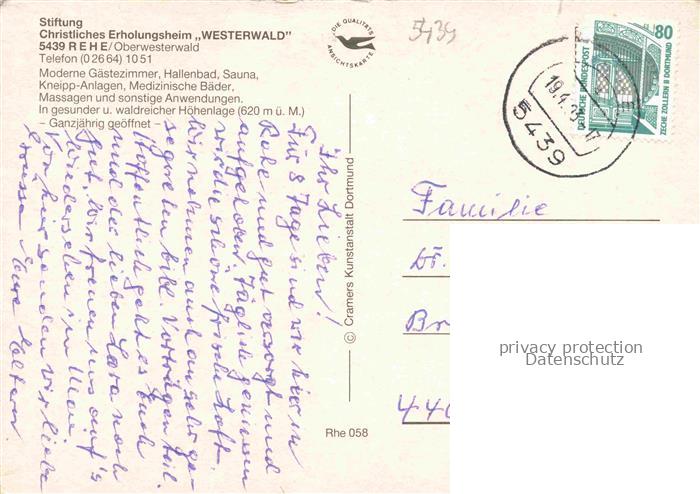 Stiftung
Christliches Erholungsheim „WESTERWALD"
5439 REHE/Oberwesterwald
Telefon (02664) 1051
Moderne Gästezimmer, Hallenbad, Sauna,
Kneipp-Anlagen, Medizinische Bäder,
Massagen und sonstige Anwendungen.
In gesunder u. waldreicher Höhenlage (620 m ü. M.)
– Ganzjährig geöffnet –
DIE QUALITÄTS
ANSICHTSKARTE
5439
80
DEUTSCHE BUNDESPOST
ZECHE ZOLLERN II DORTMUND
5439
Ihr Lieben!
Für 8 Tage sind wir hier in
Ruhe und gut versorgt und
aufgehoben. Täglich genießen
wir die schöne frische Luft.
Wir nehmen auch an sehr ge-
segneten bibl. Vorträgen teil.
Hoffentlich geht es Euch
und der lieben Lara noch
gut. Wir freuen uns auf's
Wiedersehen im
Von hier senden wir liebe
Grüsse Eure Eltern
© Cramers Kunstanstalt Dortmund
Rhe 058
Familie
Dr.
Br
440
privacy protection
Datenschutz